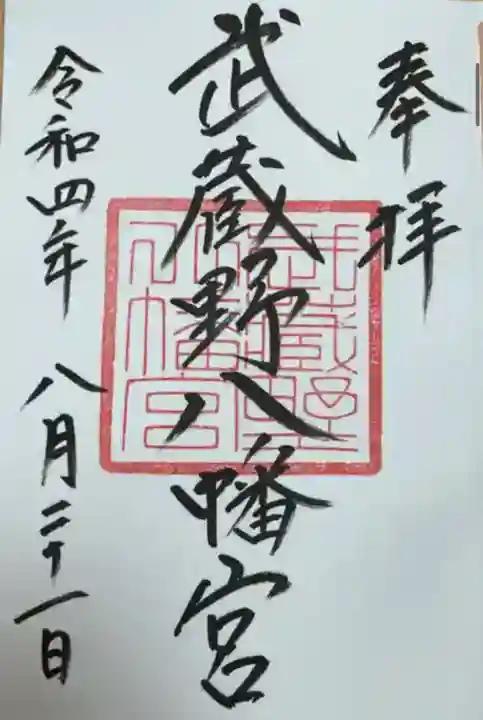 奉拝
武蔵野八幡宮
武蔵野
八幡宮
令和四年 八月二十一日